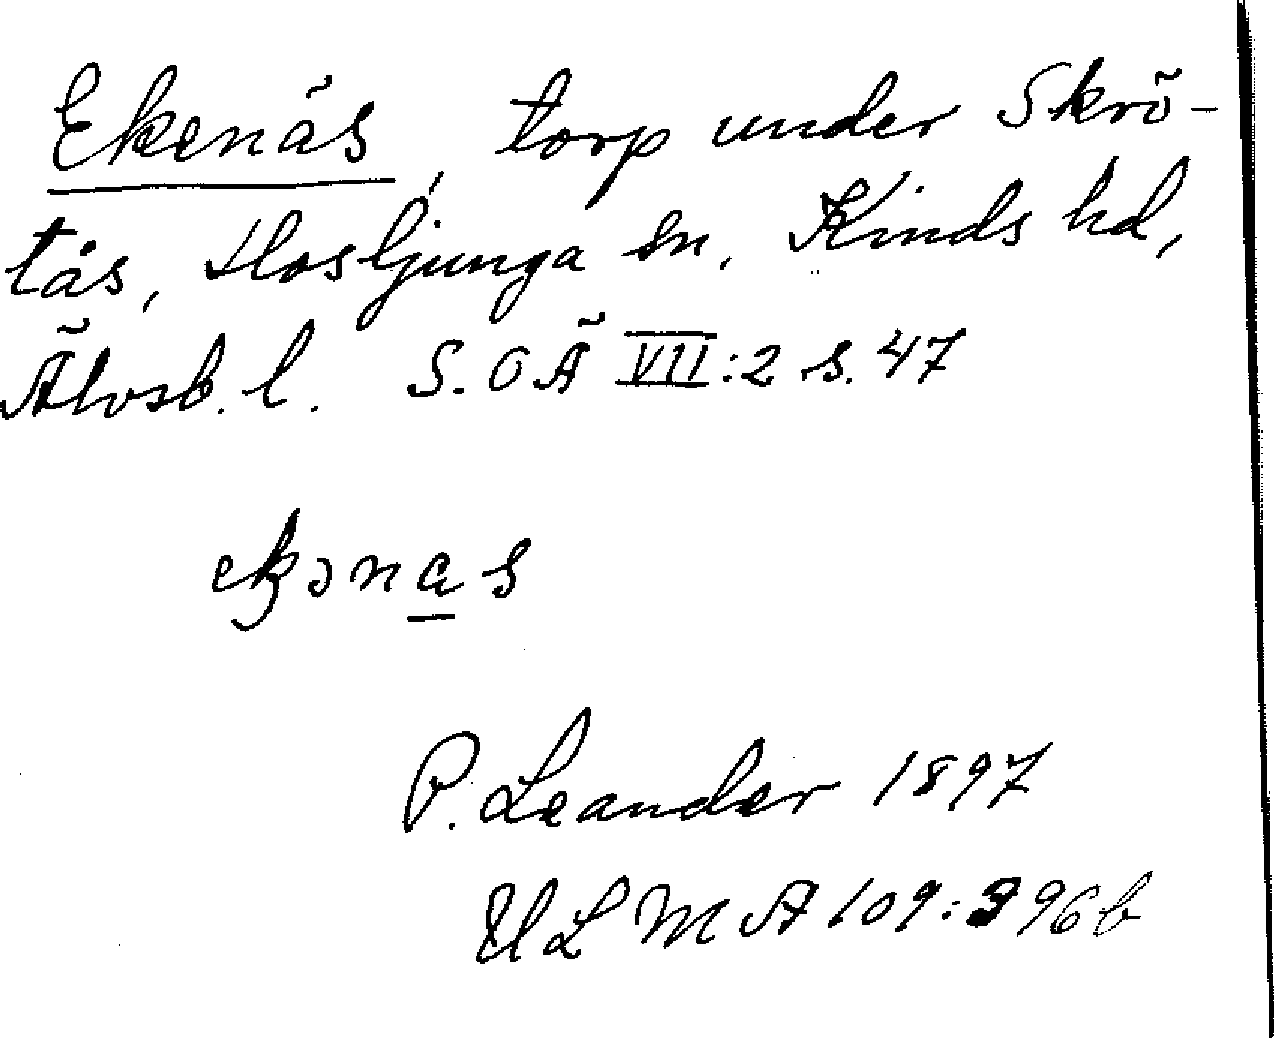 Ekenäs, torp under Skrö-
tås, Hosljunga sn, Kinds hd,
Älvsb. l. S. O Ä VII:2 s. 47
ekənas
P. Leander 1897
ULMA 109:396b